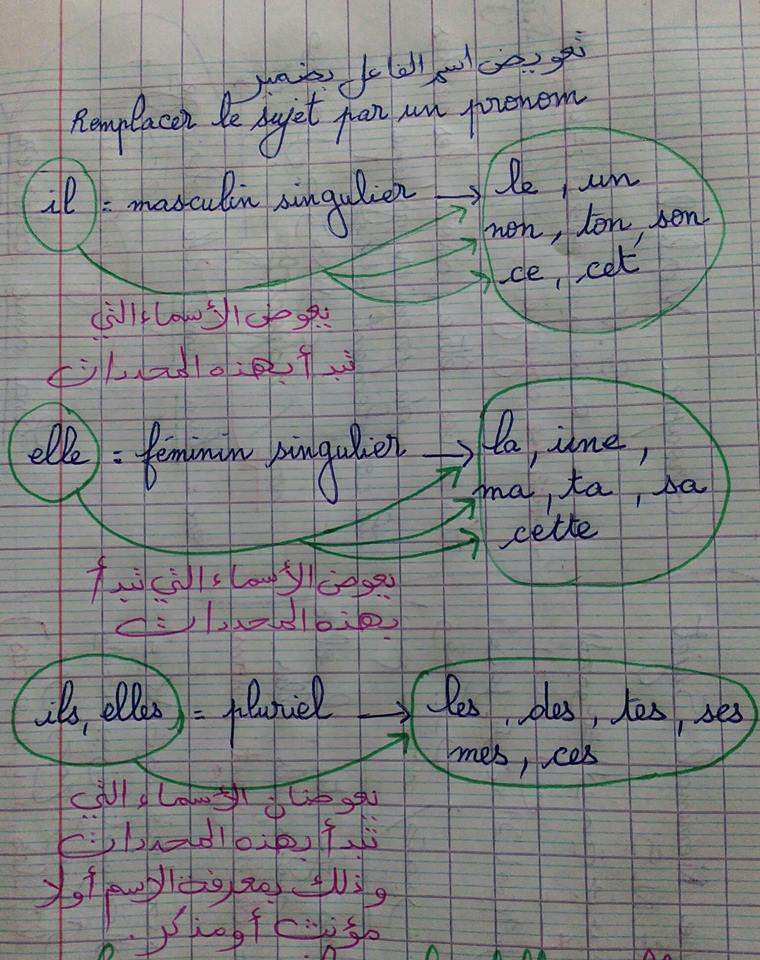 تعويض اسم الفاعل بضمير
Remplacer le sujet par un pronom
il = masculin singulier → le, un
non, ton, son
ce, cet
يعوض الأسماء التي
تبدأ بهذه المحددات
elle = féminin singulier → la, une,
ma, ta, sa
cette
يعوض الأسماء التي تبدأ
بهذه المحددات
ils, elles = pluriel → les, des, tes, ses
mes, ces
يعوضان الأسماء التي
تبدأ بهذه المحددات
وذلك بمعرفة الاسم أولا
مؤنث أو مذكر.